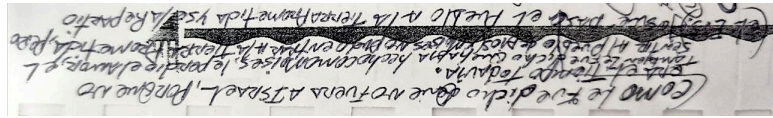 (COMO LE FUE DICHO QUE NO FUERA A ISRAEL, PORQUE NO
ERA EL TIEMPO TODAVIA.
TAMBIEN LE FUE DICHO QUE HECHO COMO MOISES, le el amor, el
SENTIR AL PUEBLO DE DIOS, MOISES NO PUDO ENTRAR A LA TIERRA PROMETIDA, PERO
JOSUE PASO EL PUEBLO A LA TIERRA PROMETIDA Y SE LA REPARTIO